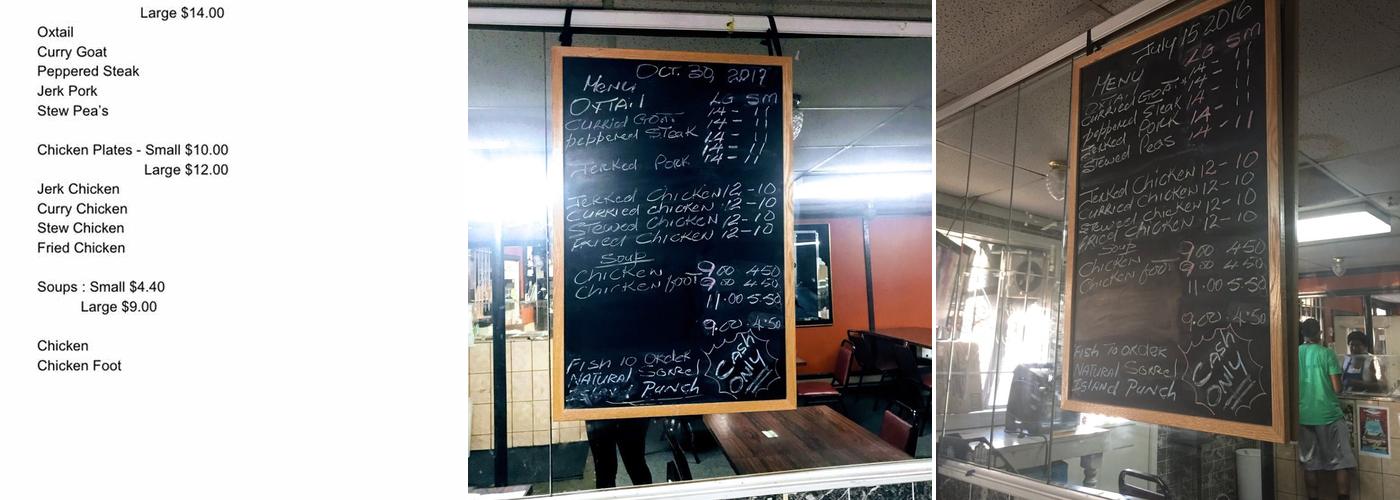 Large $14.00
Oxtail
Curry Goat
Peppered Steak
Jerk Pork
Stew Pea's
Chicken Plates - Small $10.00
Large $12.00
Jerk Chicken
Curry Chicken
Stew Chicken
Fried Chicken
Soups : Small $4.40
Large $9.00
Chicken
Chicken Foot
OCT. 30, 2017
MENU
LG SM
OXTAil 14 - 11
CURRIED GOAT 14 - 11
peppered STEAK 14 - 11
JERKED PORK 14 - 11
JERKED Chicken 12-10
CURRIED chicken 12-10
STEWED Chicken 12-10
FRied Chicken 12-10
Soup
Chicken 9.00 4.50
Chicken foot 9.00 4.50
11.00 5.50
9.00 4.50
FISH TO ORDER
NATURAL SORREL
ISLAND PUNCH
CASH
ONLY
July 15 2016
LG SM
MENU
OXTAIL 14 - 11
CURRIED GOAT 14 - 11
peppered STEAK 14 - 11
JERKED PORK 14 - 11
STEWED PEAS 14 - 11
JERKED Chicken 12-10
CURRIED Chicken 12-10
STEWED Chicken 12-10
FRIED Chicken 12-10
Soup
Chicken 9.00 4.50
Chicken foot 9.00 4.50
11.00 5.50
9.00 4.50
FISH TO ORDER
NATURAL SORREL
ISLAND PUNCH
CASH
ONLY